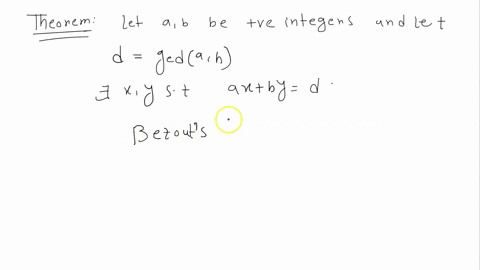 Theorem: Let a,b be +ve integers and let
d = gcd(a,b)
∃ x,y s.t ax+by = d.
Bezout's